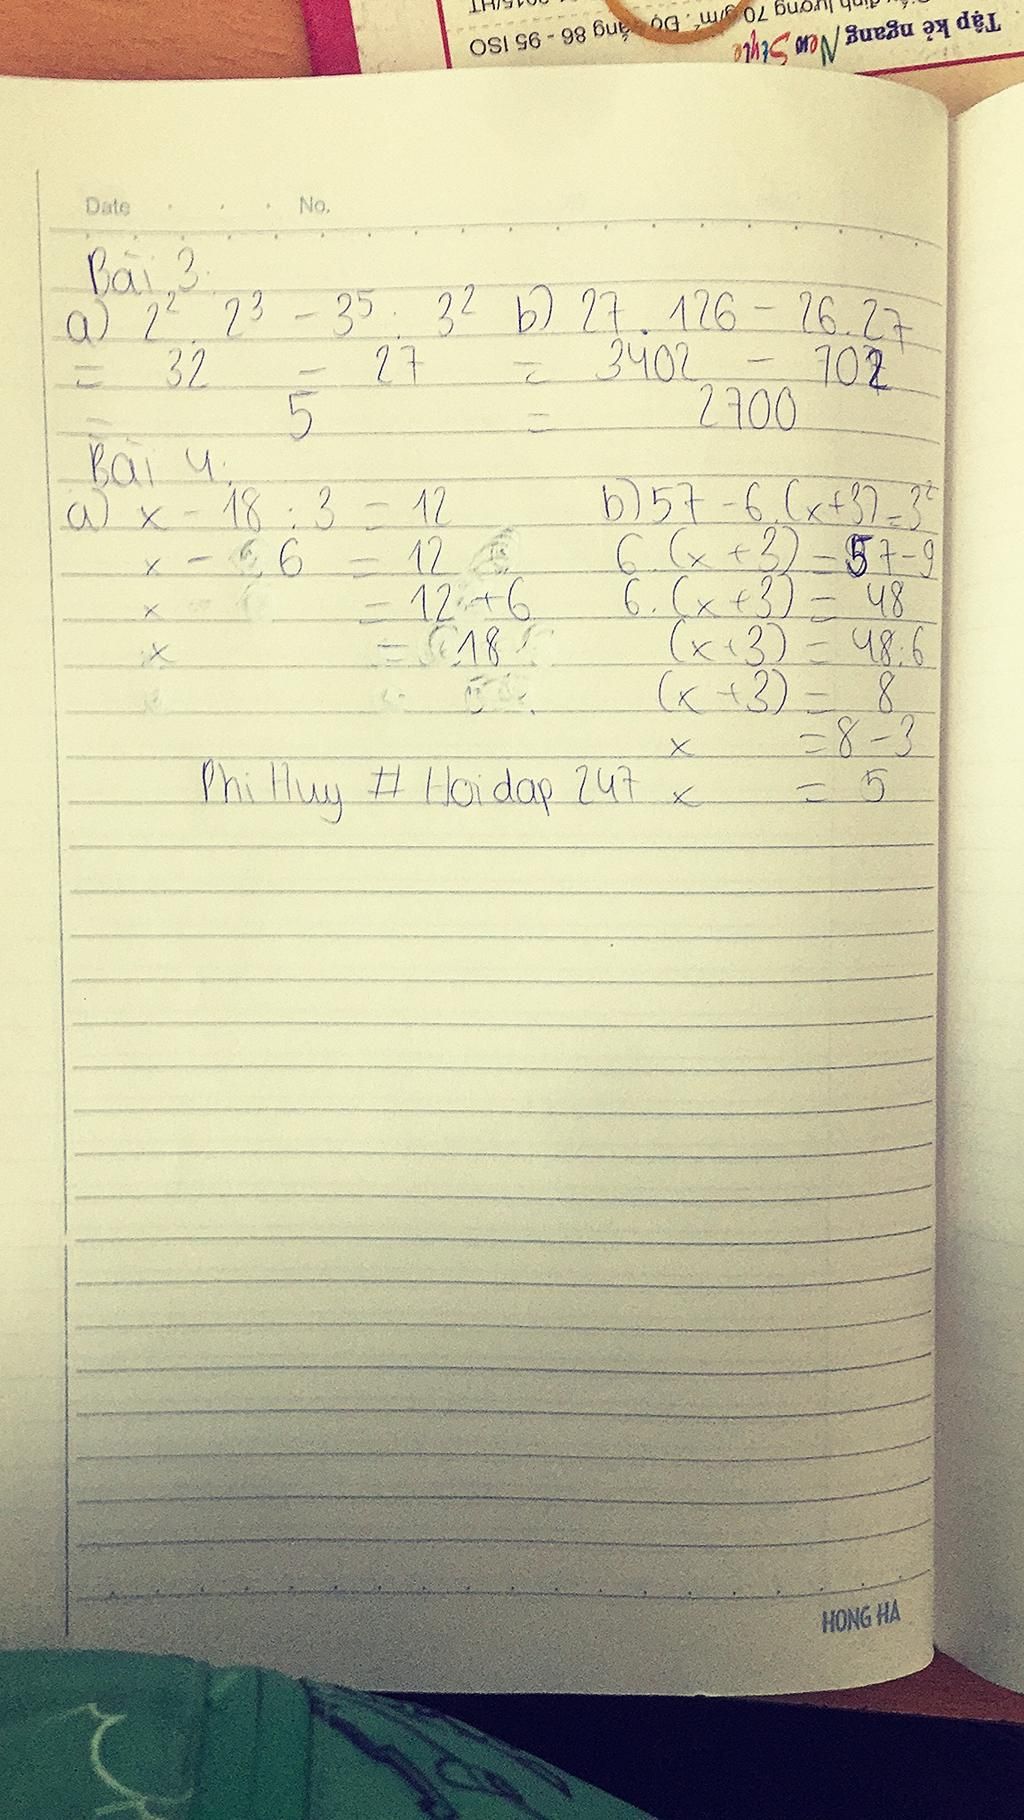 Tập kẻ ngang New Style
Định lượng 70 g/m². Độ trắng 86 - 95 ISO
Date . . . No.
Bài 3:
a) 2² . 2³ - 3⁵ : 3² b) 27 . 126 - 26 . 27
= 32 - 27 = 3402 - 702
= 5 = 2700
Bài 4:
a) x - 18 : 3 = 12 b) 57 - 6 . (x + 3) = 3²
x - 6 = 12 6 . (x + 3) = 57 - 9
x = 12 + 6 6 . (x + 3) = 48
x = 18 (x + 3) = 48 : 6
(x + 3) = 8
x = 8 - 3
Phi Huy # Hoidap 247 x = 5
HONG HA